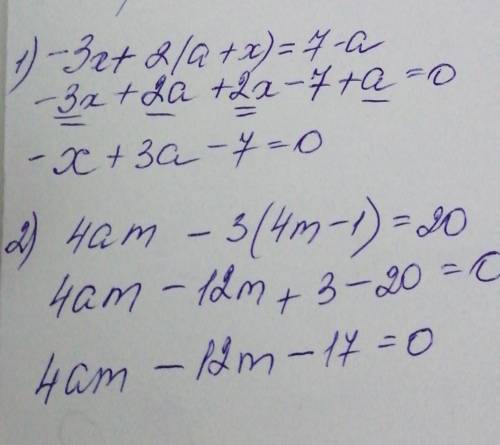 1) -3x + 2(a + x) = 7 - a
-3x + 2a + 2x - 7 + a = 0
-x + 3a - 7 = 0
2) 4am - 3(4m - 1) = 20
4am - 12m + 3 - 20 = 0
4am - 12m - 17 = 0